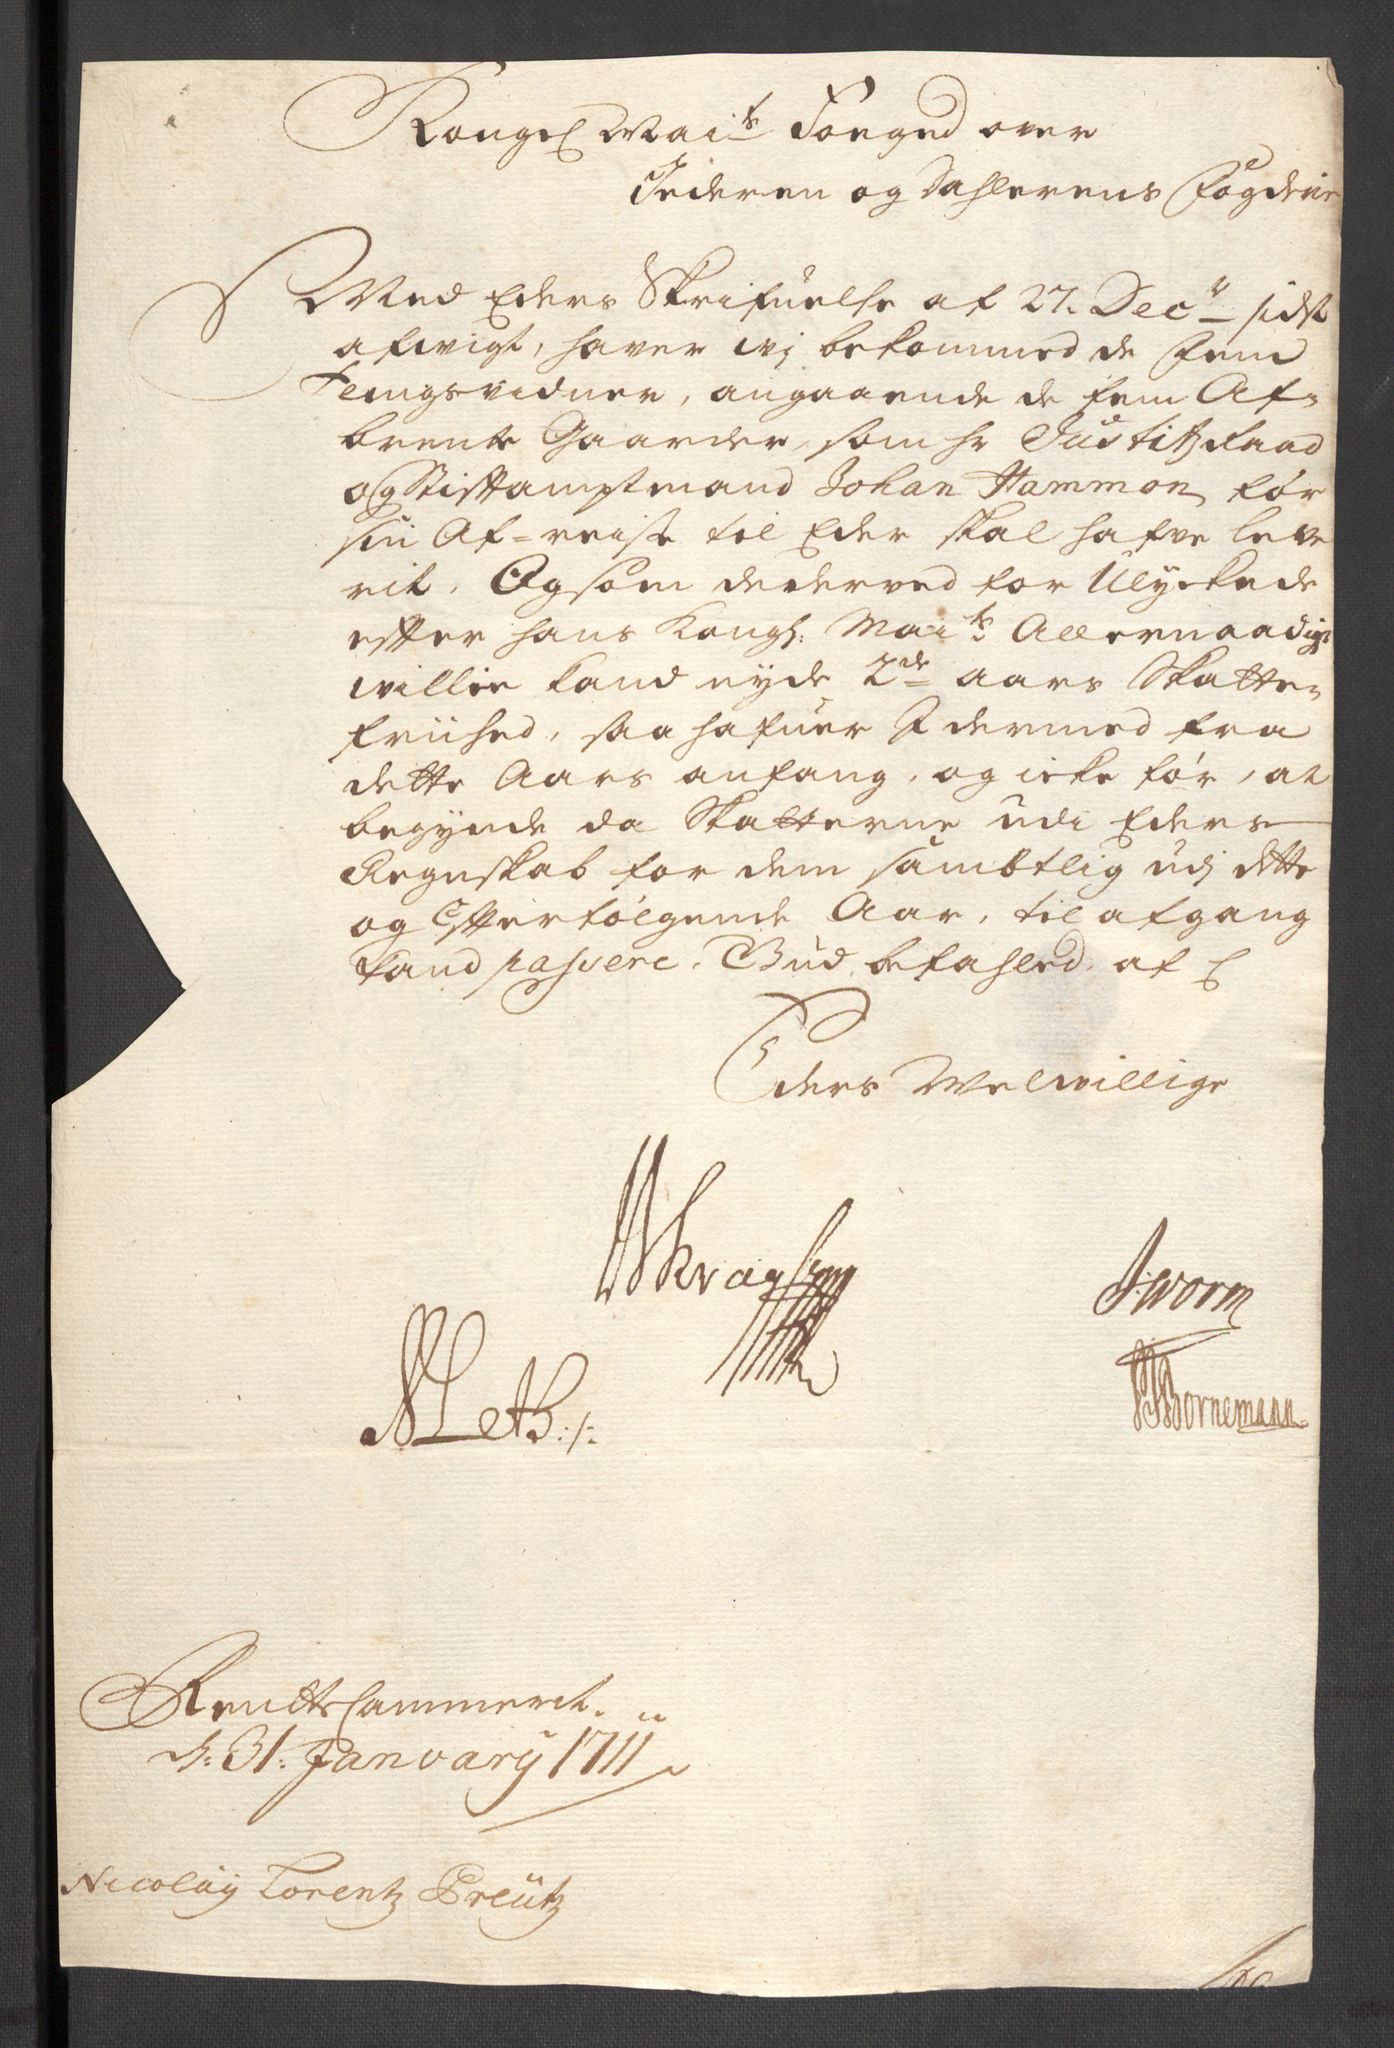 Kongel Mai:ts Foeged over
Jederen og Dahlerens Fogderie
Med Eders Skrifuelse af 27. Decr sidst
afvigt, haver wj bekommed de Fem
Tingsvidner, angaaende de fem Af-
brente Gaarder, som hr Justitz Raad
og Stiftamptmand Johan Hammon før
sin Af-reise til Eder skal hafve leve
rit. Og som de derved for Ulyckede
effter hans Kongl: Mai:ts Allernaadigst
willie kand nyde 2de aars Skatte-
friihed, saa hafuer I dermed fra
dette Aars anfang, og icke før, at
begynde da Skatterne udi Eders
Regnskab for dem sambtlig udj dette
og Effterfølgende Aar, til afgang
kand passere. Gud befahled af
Eders Welwillige
J. Worm
Bornemann
Rentte Cammeret.
d: 31: January 1711
Nicolay Lorentz Preütz